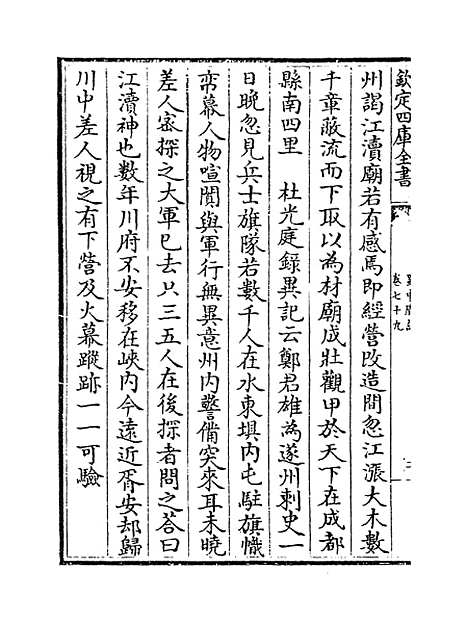 欽定四庫全書
卷七十九
州謁江瀆廟若有感焉即經營改造間忽江漲大木數
千章蔽流而下取以為材廟成壯觀甲於天下在成都
縣南四里　杜光庭錄異記云鄭君雄為遂州刺史一
日晚忽見兵士旗隊若數千人在水東壩内屯駐旗幟
帟幕人物喧闐與軍行無異意州内警備突來耳未曉
差人密探之大軍已去只三五人在後探者問之答曰
江瀆神也數年川府不安移在峽内今遠近胥安却歸
川中差人視之有下營及火幕蹤跡一一可驗